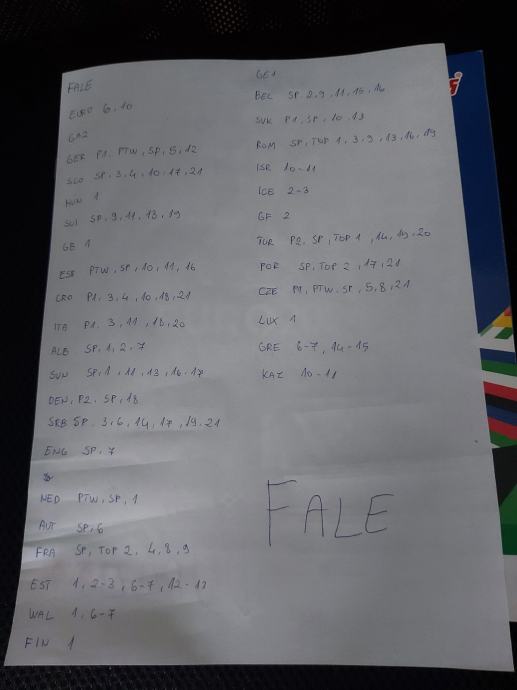 FALE
EURO 6, 10
GA2
GER P1. PTW, SP, 5, 12
SCO SP, 3, 4, 10, 17, 21
HUN 1
SUI SP, 9, 11, 13, 19
GB 1
ESP PTW, SP, 10, 11, 16
CRO P1, 3, 4, 10, 18, 21
ITA P1. 3, 11, 18, 20
ALB SP, 1, 2, 7
SVN SP, 1, 11, 13, 16-17
DEN, P2. SP, 18
SRB SP. 3, 6, 14, 17, 19. 21
ENG SP, 7
NED PTW, SP, 1
AUT SP, 6
FRA SP, TOP 2, 4, 8, 9
EST 1, 2-3, 6-7, 12-13
WAL 1, 6-7
FIN 1
GE1
BEL SP. 2, 9, 11, 15, 16
SVK P1, SP, 10. 13
ROM SP, TOP 1, 3, 9, 13, 16, 19
ISR 10-11
ICE 2-3
GF 2
TUR P2. SP, TOP 1, 14, 19, 20
POR SP, TOP 2, 17, 21
CZE P1, PTW. SP, 5, 8, 21
LUX 1
GRE 6-7, 14-15
KAZ 10-11
FALE